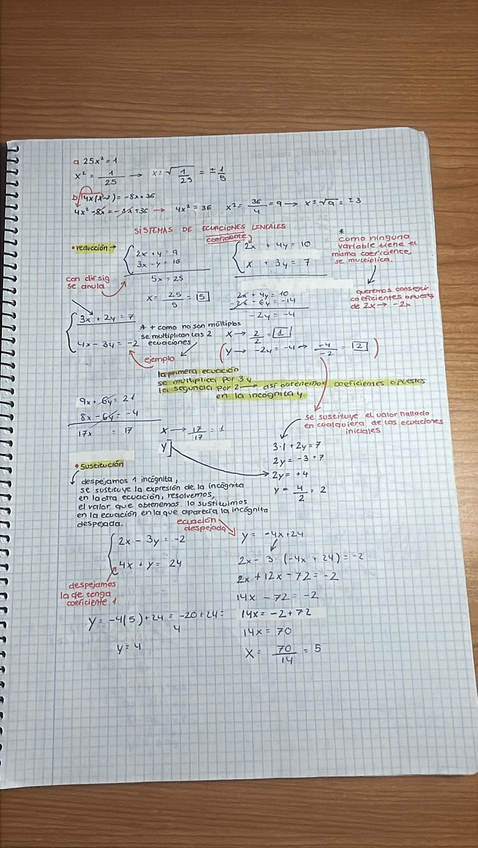 a. 25x² = 1
x² = 1/25 → x = √1/25 = ± 1/5
b) 4x(x-2) = -8x + 36
4x² - 8x = -8x + 36 → 4x² = 36 x² = 36/4 = 9 → x = √9 = ±3
SISTEMAS DE ECUACIONES LINEALES
• reducción →
coeficiente
2x + y = 9
3x - y = 16
5x = 25
x = 25/5 = 5
con dif sig
se anula
2x + 4y = 10
x + 3y = 7
2x + 4y = 10
-2x - 6y = -14
-2y = -4
x → 2/2 = 1
y → -2y = -4 → -4/-2 = 2
* como ninguna
variable tiene el
mismo coeficiente,
se multiplica.
queremos conseguir
coeficientes opuestos
de 2x → -2x
3x + 2y = 7
4x - 3y = -2
* + como no son múltiplos
se multiplican las 2
ecuaciones
ejemplo
la primera ecuación
se multiplica por 3 y
la segunda por 2 → así obtenemos coeficientes opuestos
en la incógnita y.
9x + 6y = 21
8x - 6y = -4
17x = 17
x → 17/17 = 1
y
se sustituye el valor hallado
en cualquiera de las ecuaciones
iniciales
3·1 + 2y = 7
2y = -3 + 7
2y = +4
y = 4/2 = 2
• Sustitución
despejamos 1 incógnita,
se sustituye la expresión de la incógnita
en la otra ecuación, resolvemos,
el valor que obtenemos lo sustituimos
en la ecuación en la que aparecía la incógnita
despejada.
ecuación
despejada
2x - 3y = -2
4x + y = 24
despejamos
la de tenga
coeficiente 1
y = -4x + 24
2x - 3·(-4x + 24) = -2
2x + 12x - 72 = -2
14x - 72 = -2
14x = -2 + 72
14x = 70
x = 70/14 = 5
y = -4(5) + 24 = -20 + 24 =
4
y = 4